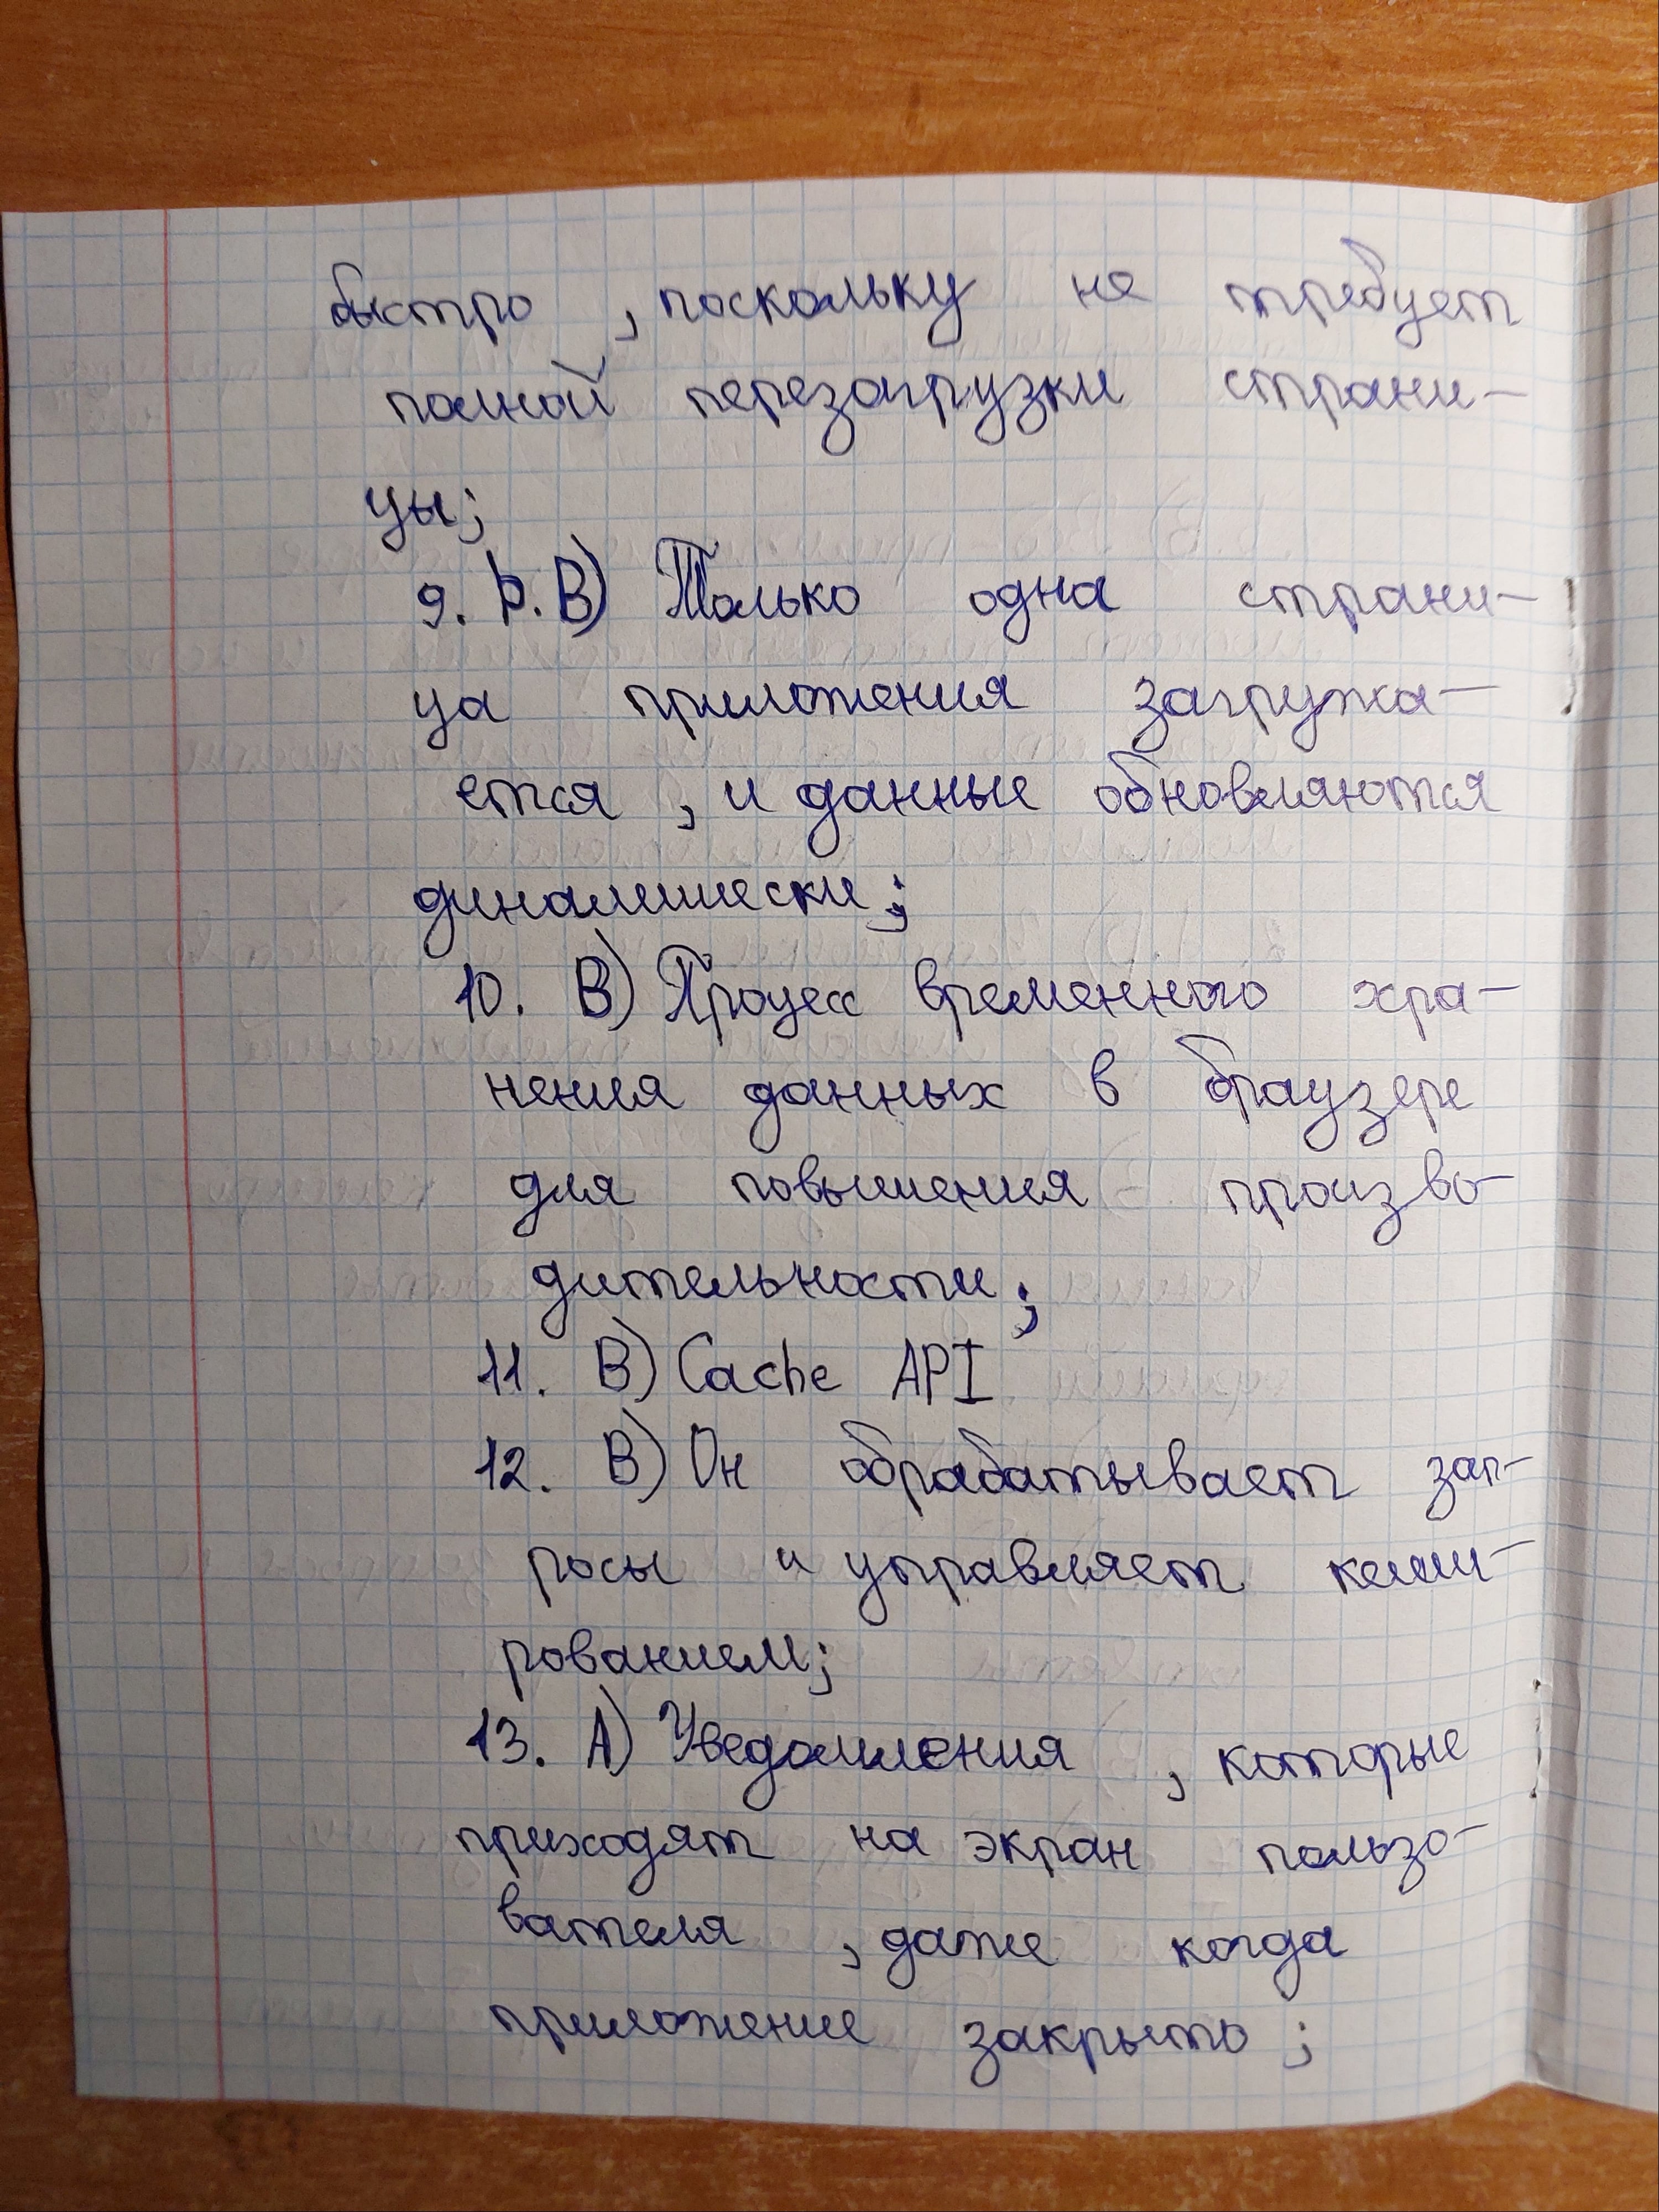 быстро, поскольку не требует
полной перезагрузки страни-
цы;
9. В) Только одна страни-
ца приложения загружа-
ется, и данные обновляются
динамически;
10. В) Процесс временного хра-
нения данных в браузере
для повышения произво-
дительности;
11. В) Cache API
12. В) Он обрабатывает зап-
росы и управляет кеши-
рованием;
13. А) Уведомления, которые
приходят на экран пользо-
вателя, даже когда
приложение закрыто;